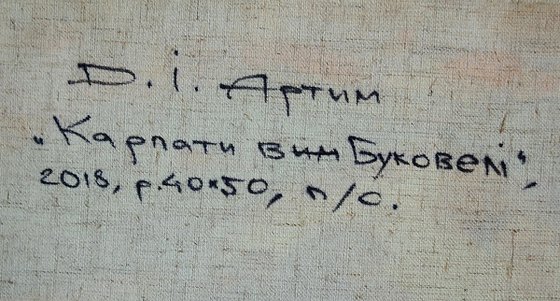 D. І. Артим
„Карпати вим Буковелі",
2018, р.40×50, п/о.